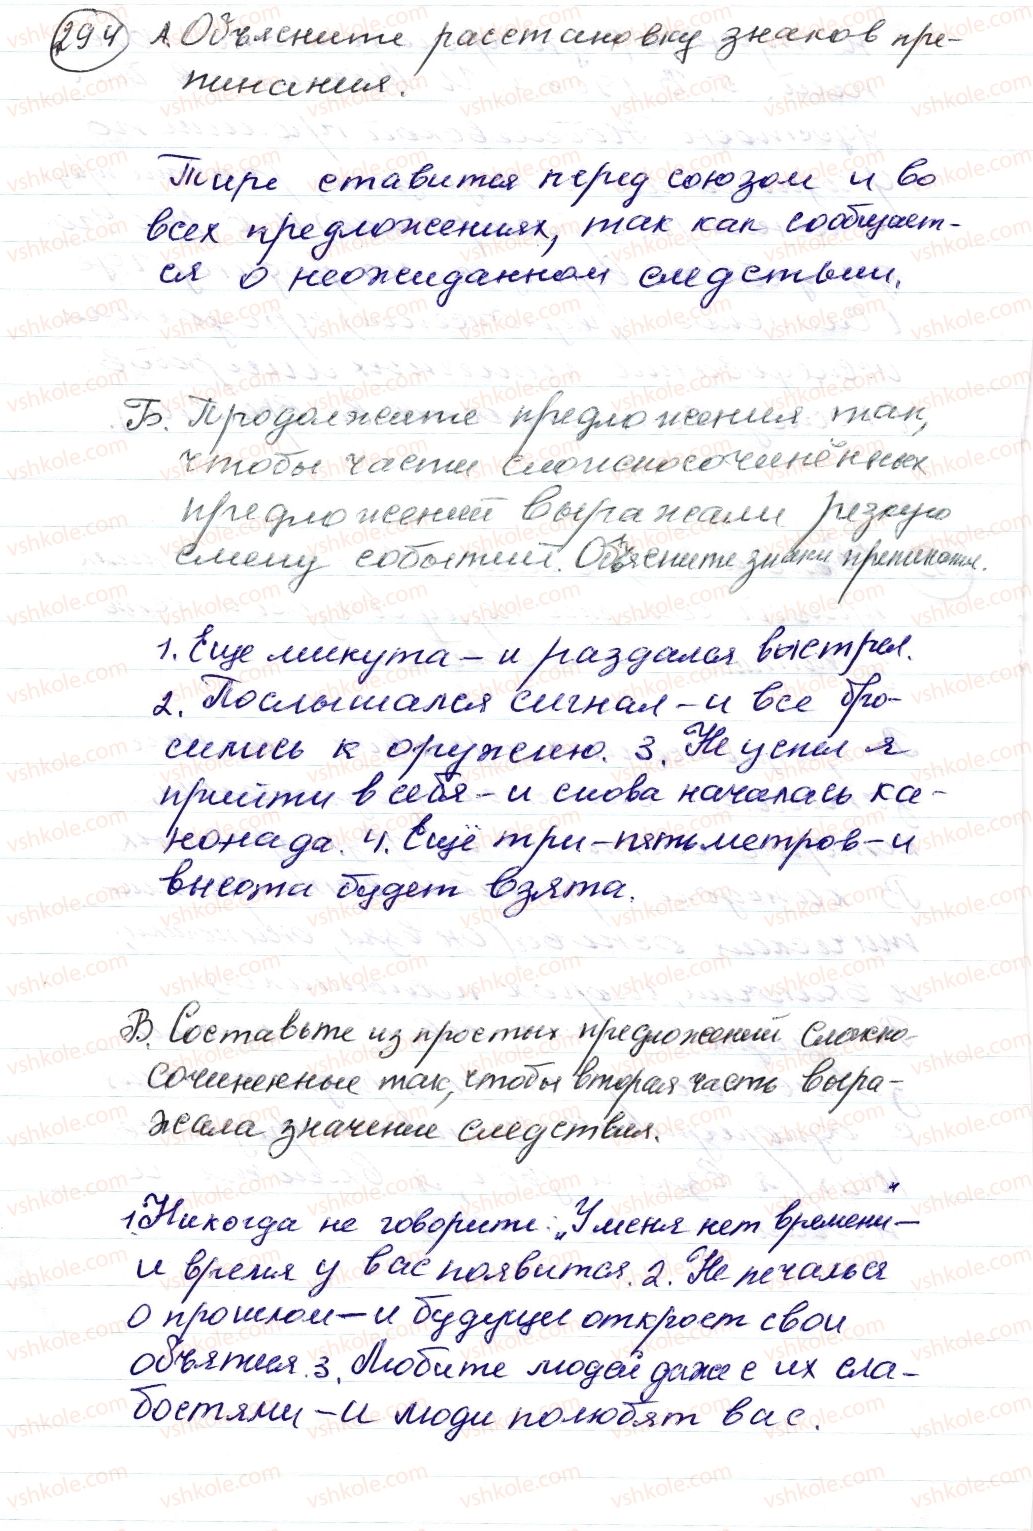 294 А. Объясните расстановку знаков пре-
пинания.
Тире ставится перед союзом и во
всех предложениях, так как сообщает-
ся о неожиданном следствии.
Б. Продолжите предложения так,
чтобы части сложносочинённых
предложений выражали резкую
смену событий. Объясните знаки препинания.
1. Еще минута – и раздался выстрел.
2. Послышался сигнал – и все бро-
сились к оружию. 3. Не успел я
прийти в себя – и снова началась ка-
нонада. 4. Ещё три-пять метров – и
высота будет взята.
В. Составьте из простых предложений сложно-
сочиненные так, чтобы вторая часть выра-
жала значение следствия.
1. Никогда не говорите: „У меня нет времени" –
и время у вас появится. 2. Не печалься
о прошлом – и будущее откроет свои
объятия. 3. Любите людей даже с их сла-
бостями – и люди полюбят вас.